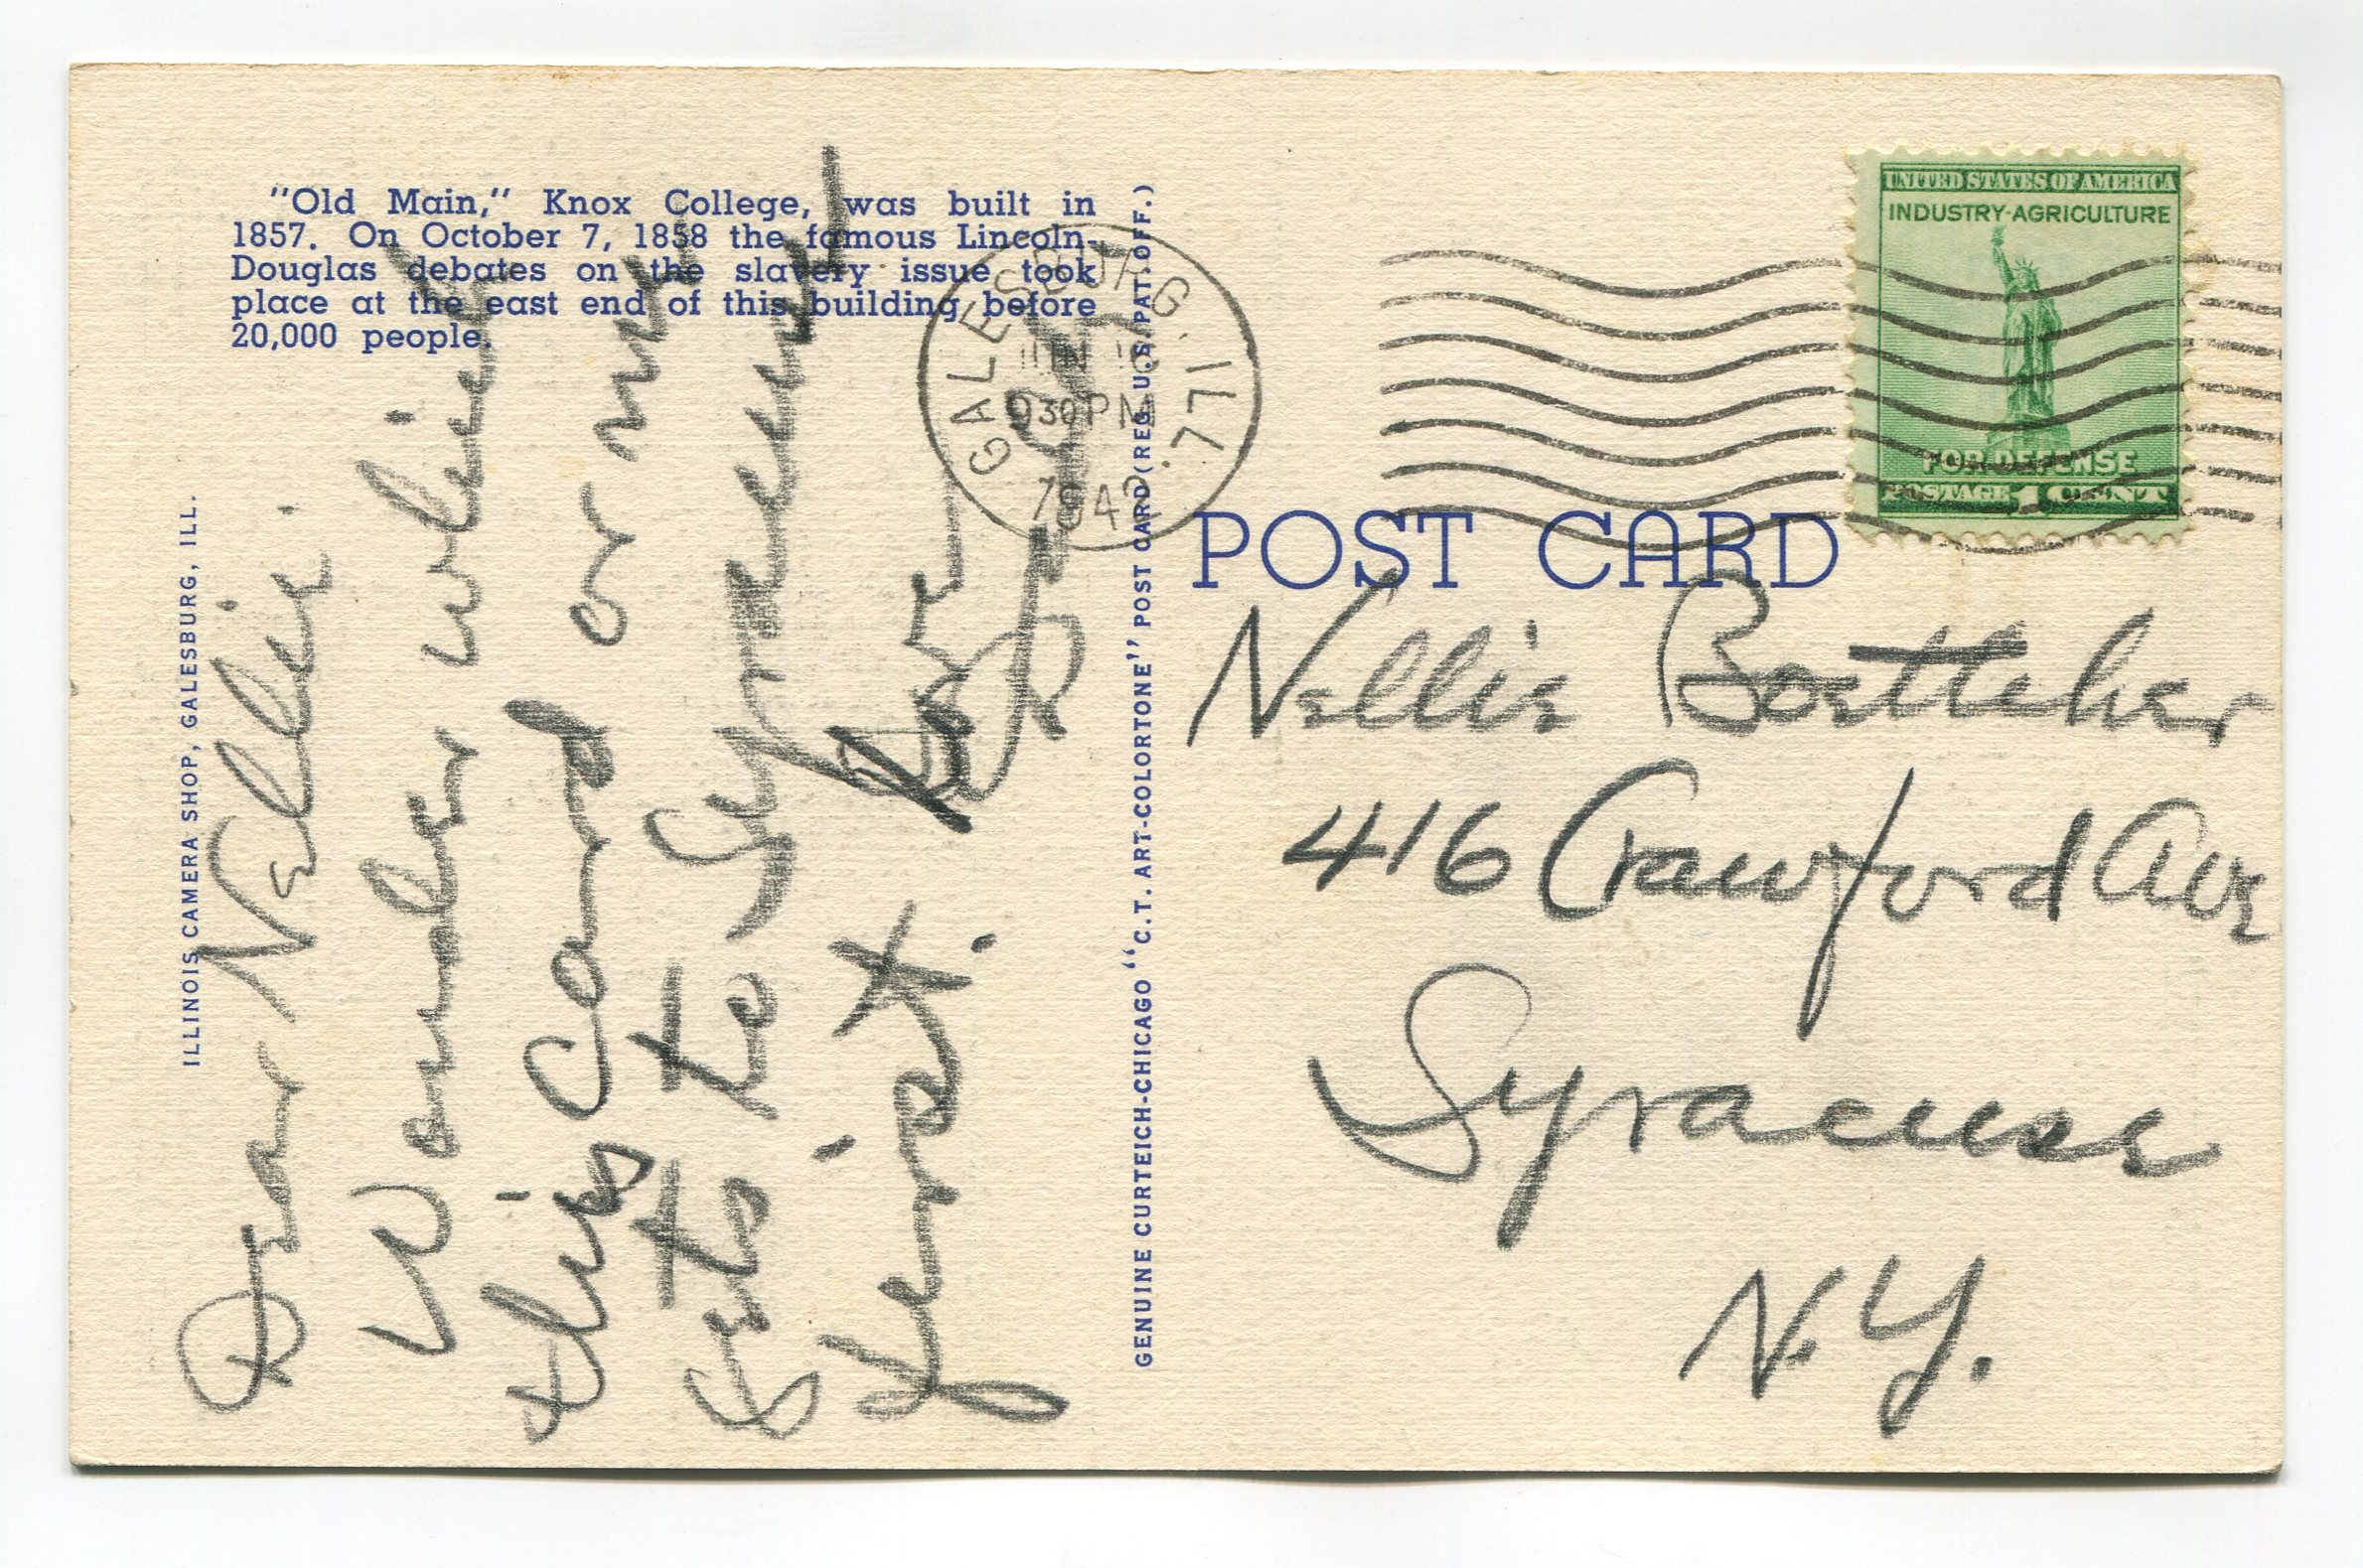 "Old Main," Knox College, was built in
1857. On October 7, 1858 the famous Lincoln-
Douglas debates on the slavery issue took
place at the east end of this building before
20,000 people.
ILLINOIS CAMERA SHOP, GALESBURG, ILL.
Dear Nellie:
Wonder which
this card or me
gets to Syracuse
first. Love
GENUINE CURTEICH-CHICAGO "C.T. ART-COLORTONE" POST CARD (REG. U.S. PAT. OFF.)
GALESBURG, ILL.
JUN
930PM
1942
UNITED STATES OF AMERICA
INDUSTRY-AGRICULTURE
FOR DEFENSE
POSTAGE 1 CENT
POST CARD
Nellie Boettcher
416 Crawford Ave
Syracuse
N.Y.